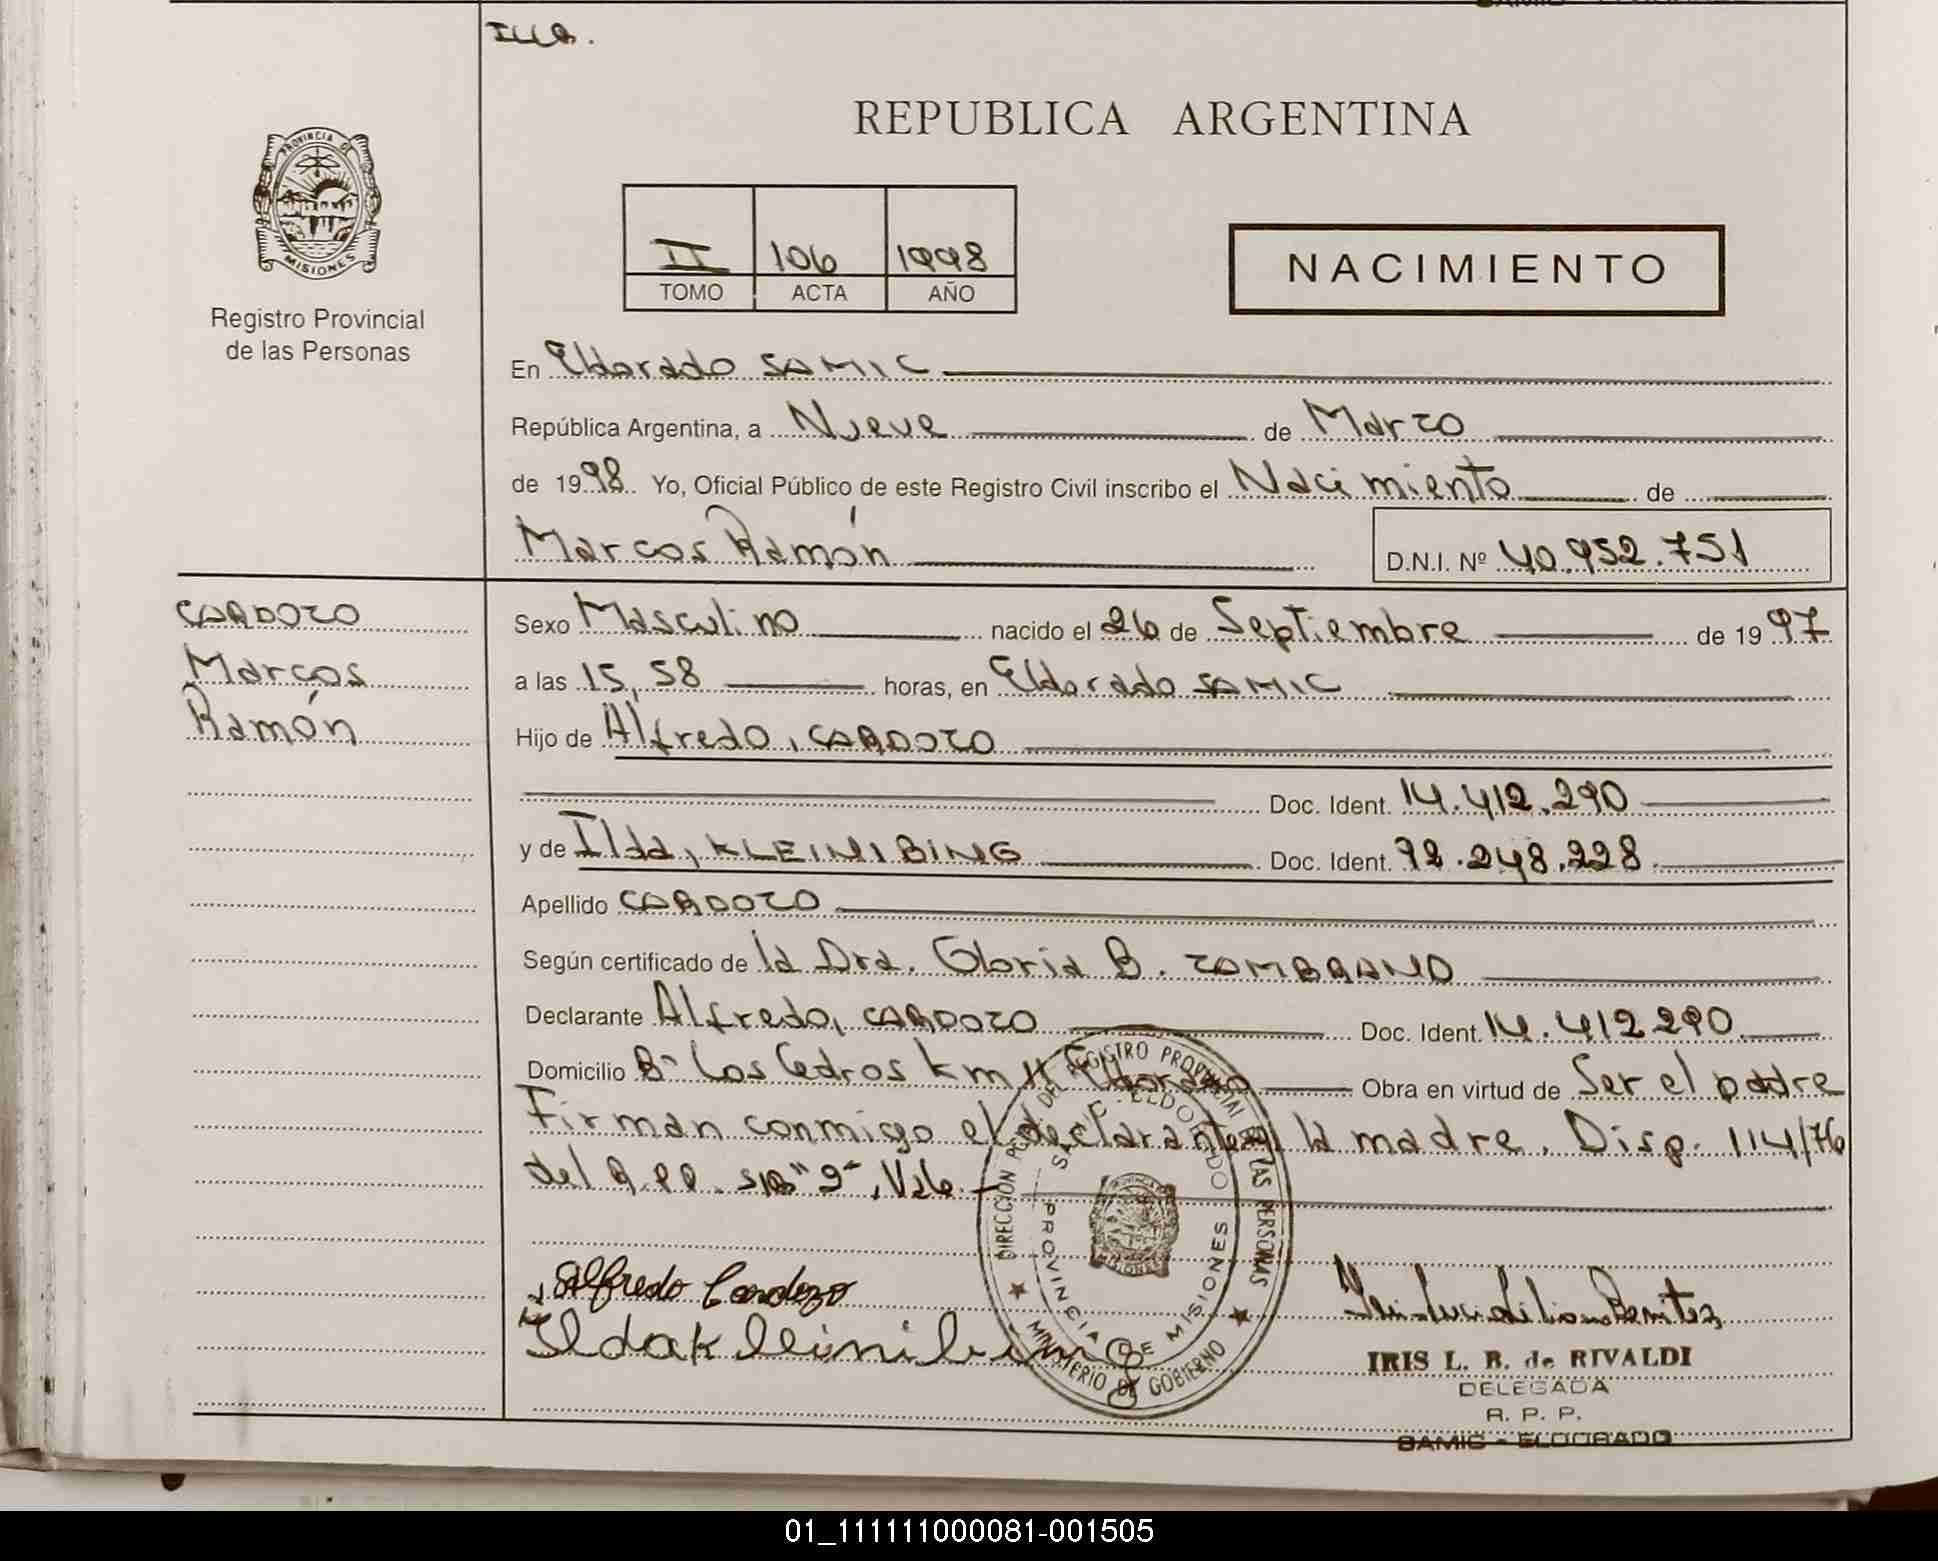 REPUBLICA ARGENTINA
PROVINCIA DE
MISIONES
Registro Provincial
de las Personas
II 106 1998
TOMO ACTA AÑO
NACIMIENTO
En Eldorado SAMIC
República Argentina, a Nueve de Marzo
de 1998 Yo, Oficial Público de este Registro Civil inscribo el Nacimiento de
Marcos Ramón D.N.I. Nº 40.952.751
CARDOZO
Marcos
Ramón
Sexo Masculino nacido el 26 de Septiembre de 1997
a las 15,58 horas, en Eldorado SAMIC
Hijo de Alfredo, CARDOZO
Doc. Ident. 14.412.290
y de Ilda, KLEINIBING Doc. Ident. 92.248.228
Apellido CARDOZO
Según certificado de la Dra. Gloria B. ZAMBRANO
Declarante Alfredo, CARDOZO Doc. Ident. 14.412290
Domicilio Bº Los Cedros Km 11 Eldorado Obra en virtud de Ser el padre
Firman conmigo el declarante y la madre. Disp. 114/76
del R.P.P.
DIRECCIÓN DEL REGISTRO PROVINCIAL DE LAS PERSONAS
MINISTERIO DE GOBIERNO
SAMIC ELDORADO
PROVINCIA DE MISIONES
Alfredo Cardozo
Ilda Kleinibing
IRIS L. B. de RIVALDI
DELEGADA
R. P. P.
SAMIC - ELDORADO
01_111111000081-001505